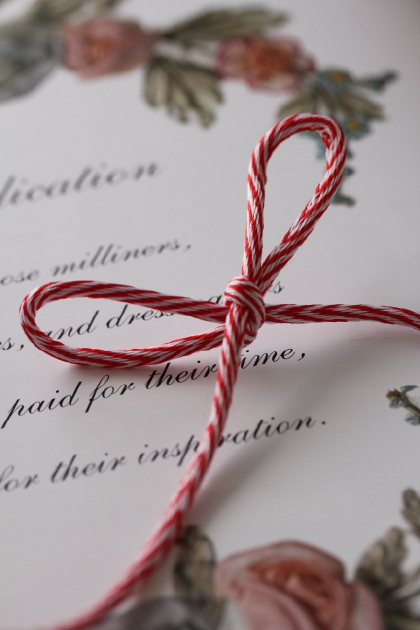 dication
ose milliners,
s, and dress
paid for their time,
for their inspiration.